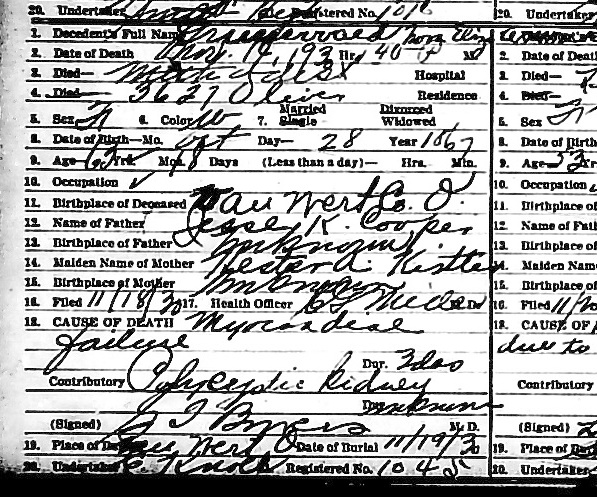 20. Undertaker Registered No. 1018
1. Decedent's Full Name Underwood
2. Date of Death Nov. 17, 193 Hr. 40 P M.
3. Died— Hospital
4. Died— 3627 Oliver Residence
5. Sex F 6. Color W 7. Married Single Divorced Widowed
8. Date of Birth—Mo. Oct Day— 28 Year 1867
9. Age— 63 Yrs. Mos. 18 Days (Less than a day)— Hrs. Min.
10. Occupation ✓
11. Birthplace of Deceased Van Wert Co. O.
12. Name of Father Jesse K. Cooper
13. Birthplace of Father Unknown
14. Maiden Name of Mother Hester A. Kistler
15. Birthplace of Mother Unknown
16. Filed 11/18/30 17. Health Officer M. D.
18. CAUSE OF DEATH Myocardial
failure
Dur. 3 das
Contributory Polycystic Kidney
Dur. unknown
(Signed) J T Byers M. D.
19. Place of Burial Van Wert O Date of Burial 11/19/30
20. Undertaker Registered No. 1045
20. Undertaker
1. Decedent's
2. Date of Death
3. Died—
4. Died—
5. Sex
8. Date of Birth
9. Age— 53 Yr
10. Occupation
11. Birthplace
12. Name of Fath
13. Birthplace of
14. Maiden Name
15. Birthplace of
16. Filed 11/20
18. CAUSE OF
due to
Contributory
(Signed)
19. Place of
20. Undertaker